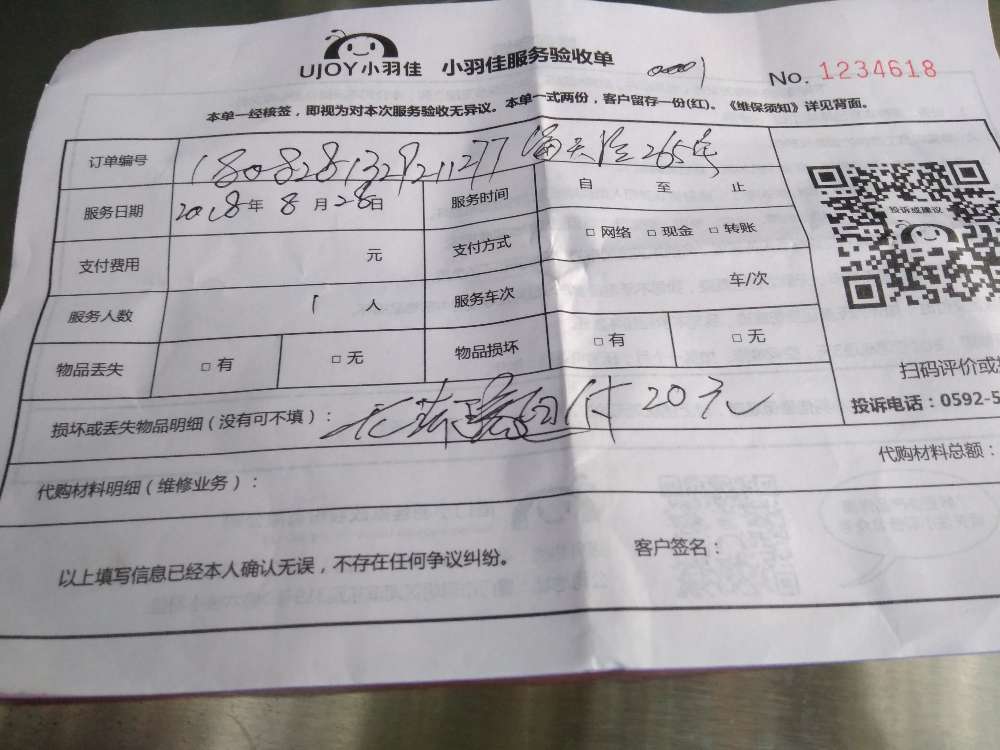 UJOY小羽佳 小羽佳服务验收单 0001 No. 1234618
本单一经核签，即视为对本次服务验收无异议。本单一式两份，客户留存一份(红)。《维保须知》详见背面。
订单编号 265
服务日期 2018年 8月28日 服务时间 自 至 止
支付费用 元 支付方式 □ 网络 □ 现金 □ 转账
服务人数 1 人 服务车次 车/次
物品丢失 □ 有 □ 无 物品损坏 □ 有 □ 无
投诉或建议
扫码评价或
投诉电话：0592-5
损坏或丢失物品明细（没有可不填）： 20元
代购材料明细（维修业务）： 代购材料总额：
以上填写信息已经本人确认无误，不存在任何争议纠纷。 客户签名：